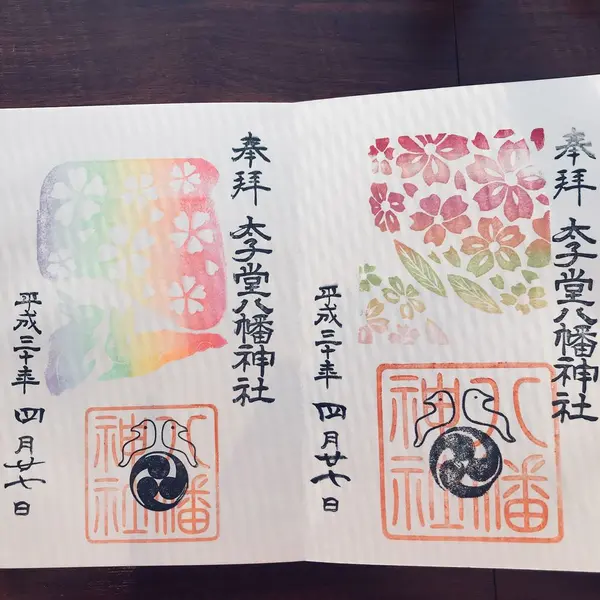 奉拝
太子堂八幡神社
平成三十年 四月廿七日
八幡
神社
奉拝
太子堂八幡神社
平成三十年 四月廿七日
八幡
神社